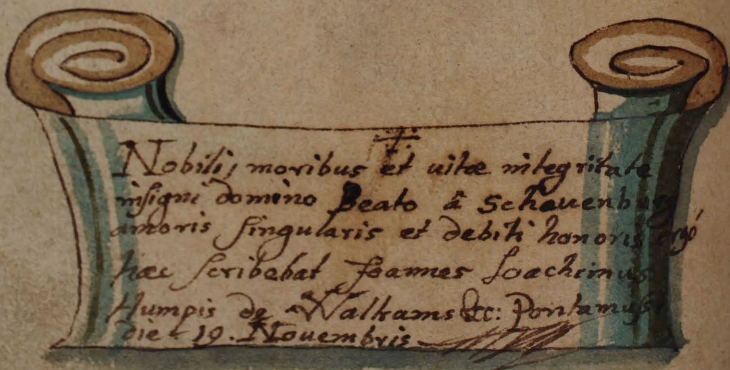 Nobili, moribus et vitæ integritate
insigni domino Beato â Schauenburg
amoris singularis et debiti honoris ergó
hæc scribebat Joannes Joachimus
Humpis de Waltrams &c: Pontamussi
die 19. Novembris